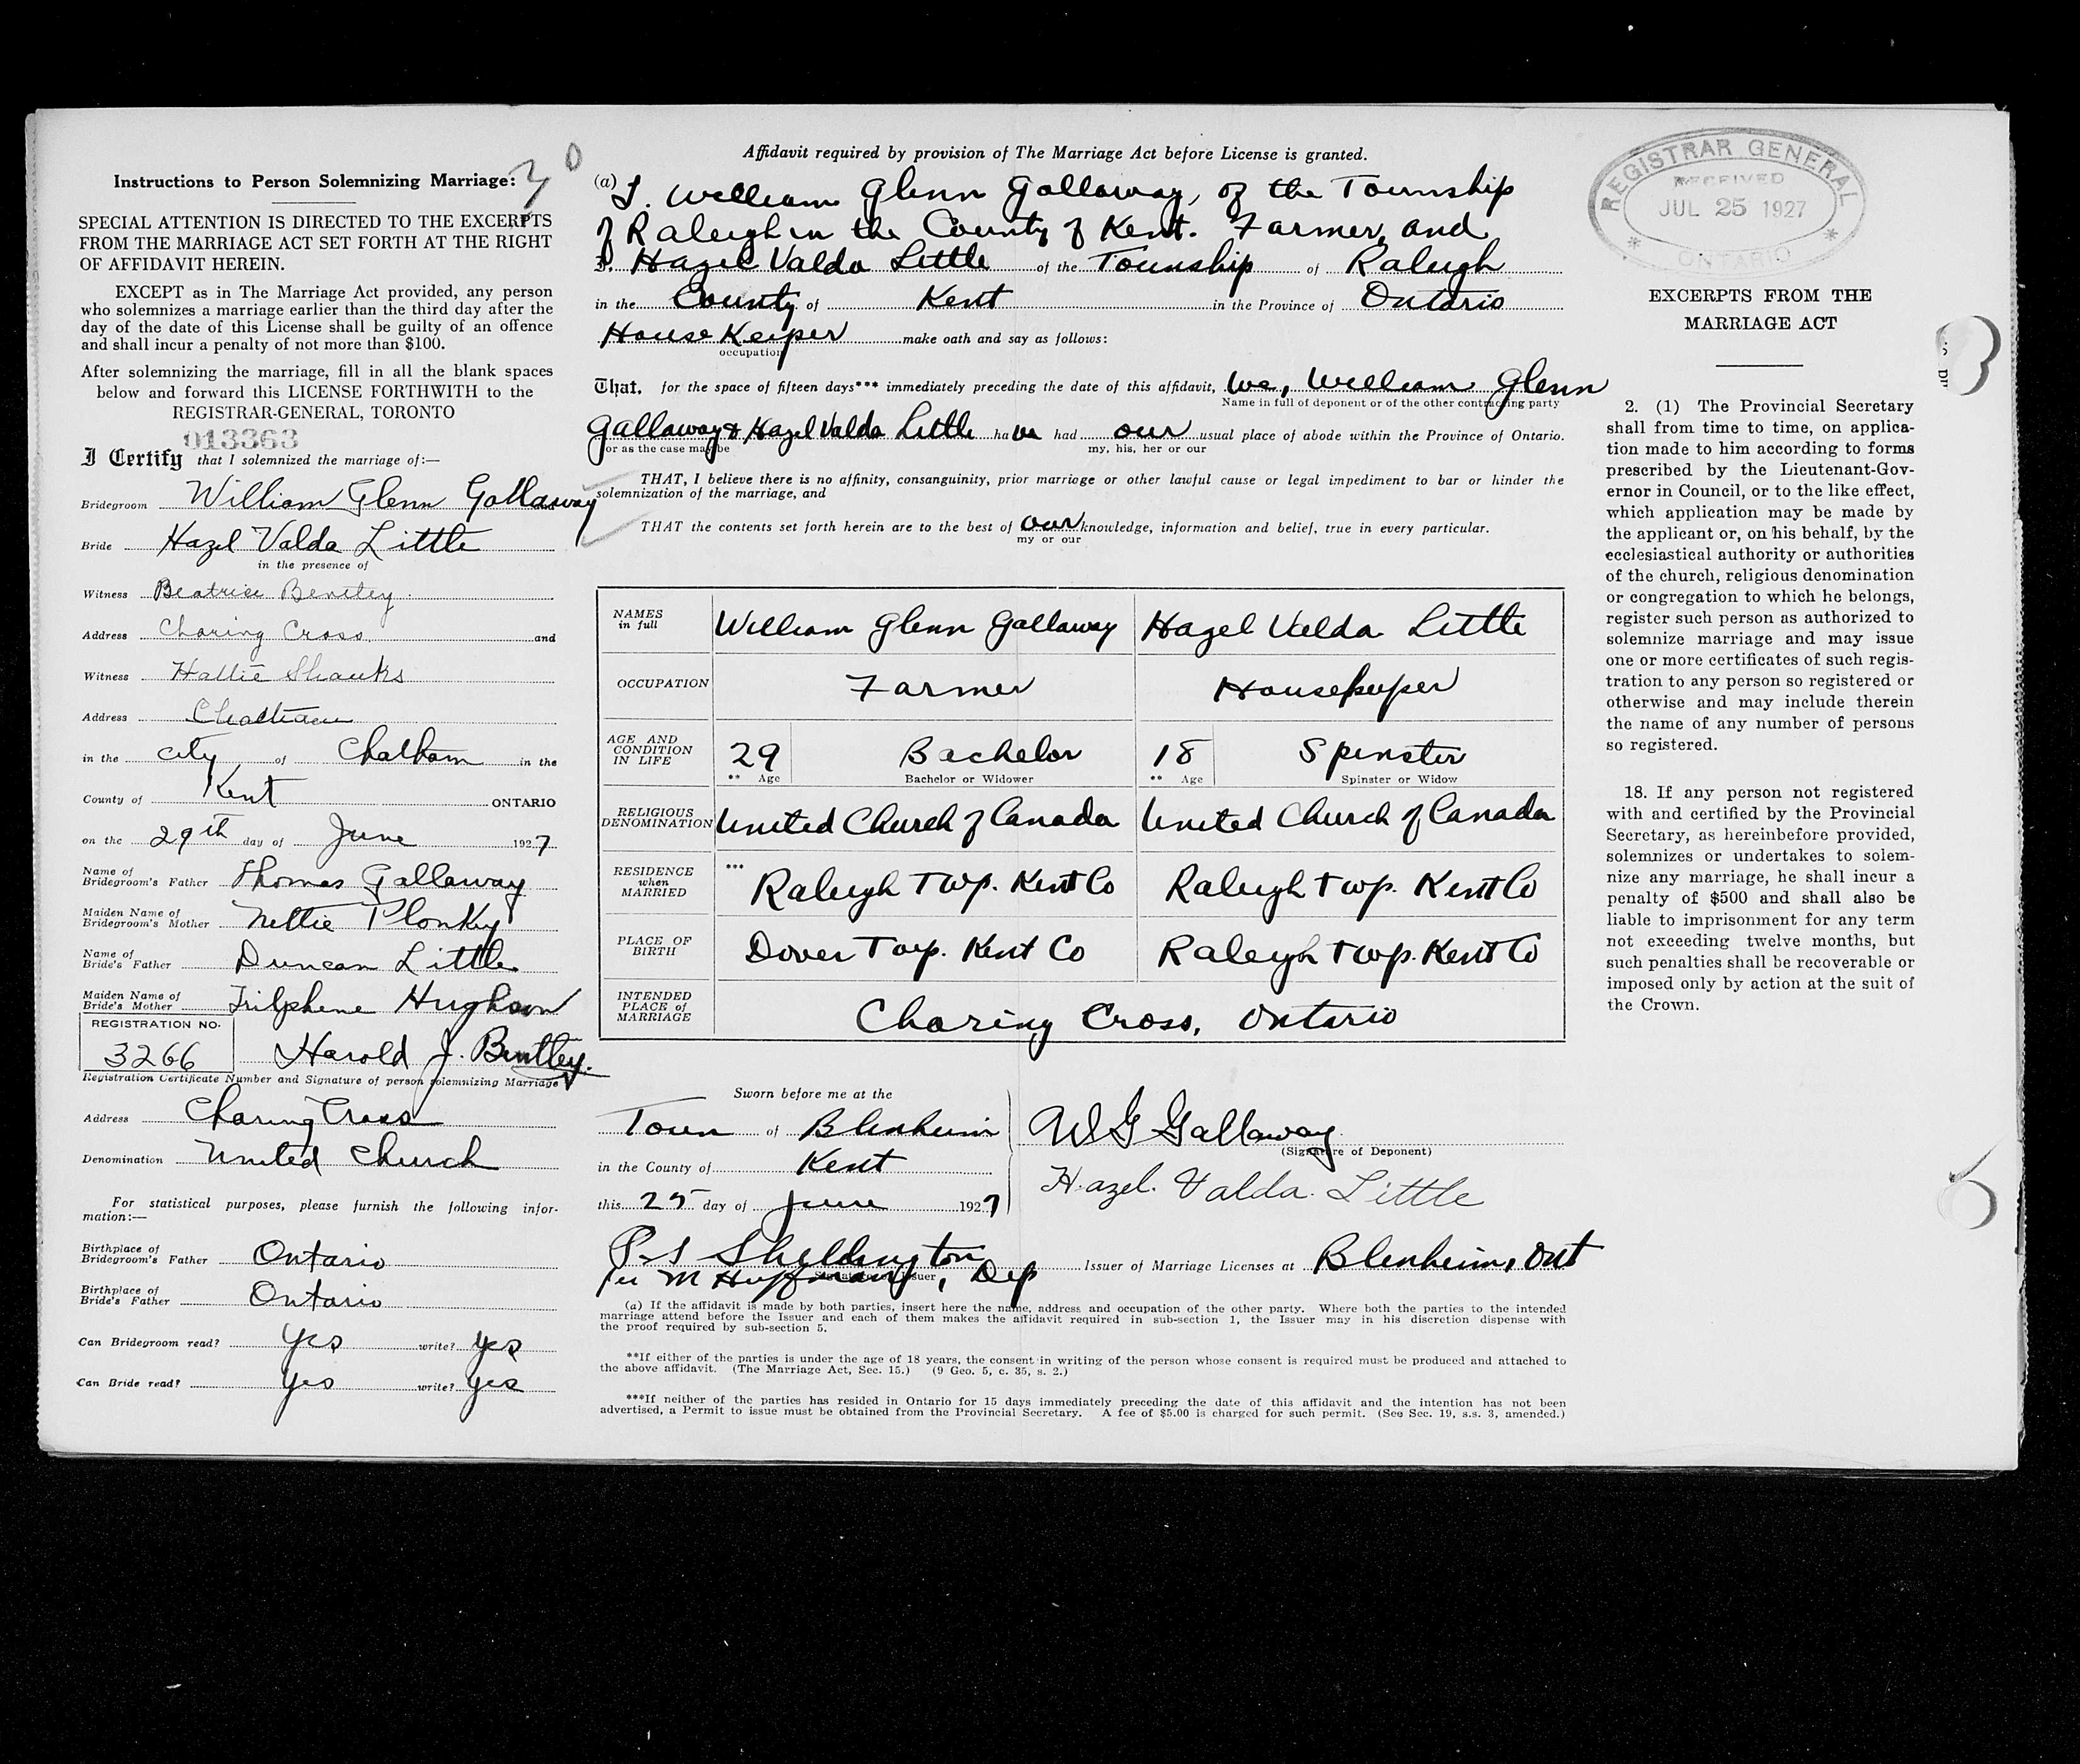 Instructions to Person Solemnizing Marriage:
SPECIAL ATTENTION IS DIRECTED TO THE EXCERPTS
FROM THE MARRIAGE ACT SET FORTH AT THE RIGHT
OF AFFIDAVIT HEREIN.
EXCEPT as in The Marriage Act provided, any person
who solemnizes a marriage earlier than the third day after the
day of the date of this License shall be guilty of an offence
and shall incur a penalty of not more than $100.
After solemnizing the marriage, fill in all the blank spaces
below and forward this LICENSE FORTHWITH to the
REGISTRAR-GENERAL, TORONTO
013363
I Certify that I solemnized the marriage of:—
Bridegroom William Glenn Gallaway
Bride Hazel Valda Little
in the presence of
Witness Beatrice Bentley
Address Charing Cross and
Witness Hattie Shanks
Address Chatham
in the city of Chatham in the
County of Kent ONTARIO
on the 29th day of June 1927
Name of
Bridegroom's Father Thomas Gallaway
Maiden Name of
Bridegroom's Mother Nettie Plonky
Name of
Bride's Father Duncan Little
Maiden Name of
Bride's Mother Trilphene Hughson
REGISTRATION NO.
3266 Harold J. Bentley.
Registration Certificate Number and Signature of person solemnizing Marriage
Address Charing Cross
Denomination United Church
For statistical purposes, please furnish the following infor-
mation:—
Birthplace of
Bridegroom's Father Ontario
Birthplace of
Bride's Father Ontario
Can Bridegroom read? Yes write? Yes
Can Bride read? Yes write? Yes
Affidavit required by provision of The Marriage Act before License is granted.
(a) I. William Glenn Gallaway, of the Township
of Raleigh in the County of Kent. Farmer, and
I. Hazel Valda Little of the Township of Raleigh
in the County of Kent in the Province of Ontario
House Keeper make oath and say as follows:
occupation
That, for the space of fifteen days*** immediately preceding the date of this affidavit, we, William Glenn
Name in full of deponent or of the other contracting party
Gallaway & Hazel Valda Little have had our usual place of abode within the Province of Ontario.
or as the case may be my, his, her or our
THAT, I believe there is no affinity, consanguinity, prior marriage or other lawful cause or legal impediment to bar or hinder the
solemnization of the marriage, and
THAT the contents set forth herein are to the best of our knowledge, information and belief, true in every particular.
my or our
NAMES in full William Glenn Gallaway Hazel Valda Little
OCCUPATION Farmer Housekeeper
AGE AND CONDITION IN LIFE 29 Bachelor 18 Spinster
** Age Bachelor or Widower ** Age Spinster or Widow
RELIGIOUS DENOMINATION United Church of Canada United Church of Canada
RESIDENCE when MARRIED *** Raleigh Twp. Kent Co Raleigh Twp. Kent Co
PLACE OF BIRTH Dover Twp. Kent Co Raleigh Twp. Kent Co
INTENDED PLACE of MARRIAGE Charing Cross, Ontario
Sworn before me at the
Town of Blenheim
in the County of Kent
this 25 day of June 1927
W G Gallaway
(Signature of Deponent)
Hazel. Valda. Little
P. S Shillington
per M Huffman, Dep Issuer of Marriage Licenses at Blenheim, Ont
(a) If the affidavit is made by both parties, insert here the name, address and occupation of the other party. Where both the parties to the intended
marriage attend before the Issuer and each of them makes the affidavit required in sub-section 1, the Issuer may in his discretion dispense with
the proof required by sub-section 5.
**If either of the parties is under the age of 18 years, the consent in writing of the person whose consent is required must be produced and attached to
the above affidavit. (The Marriage Act, Sec. 15.) (9 Geo. 5, c. 35, s. 2.)
***If neither of the parties has resided in Ontario for 15 days immediately preceding the date of this affidavit and the intention has not been
advertised, a Permit to issue must be obtained from the Provincial Secretary. A fee of $5.00 is charged for such permit. (See Sec. 19, s.s. 3, amended.)
REGISTRAR GENERAL
RECEIVED
JUL 25 1927
ONTARIO
EXCERPTS FROM THE
MARRIAGE ACT
2. (1) The Provincial Secretary
shall from time to time, on applica-
tion made to him according to forms
prescribed by the Lieutenant-Gov-
ernor in Council, or to the like effect,
which application may be made by
the applicant or, on his behalf, by the
ecclesiastical authority or authorities
of the church, religious denomination
or congregation to which he belongs,
register such person as authorized to
solemnize marriage and may issue
one or more certificates of such regis-
tration to any person so registered or
otherwise and may include therein
the name of any number of persons
so registered.
18. If any person not registered
with and certified by the Provincial
Secretary, as hereinbefore provided,
solemnizes or undertakes to solem-
nize any marriage, he shall incur a
penalty of $500 and shall also be
liable to imprisonment for any term
not exceeding twelve months, but
such penalties shall be recoverable or
imposed only by action at the suit of
the Crown.